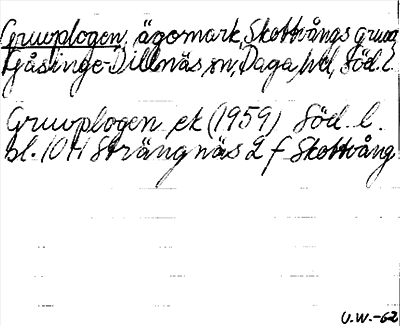 Gruvplogen, ägomark, Skottvångs gruva
Gåsinge-Dillnäs sn, Daga hd, Söd. l.
Gruvplogen ek (1959) Söd. l.
bl. 10 H Strängnäs 2 f Skottvång
U.W.-62